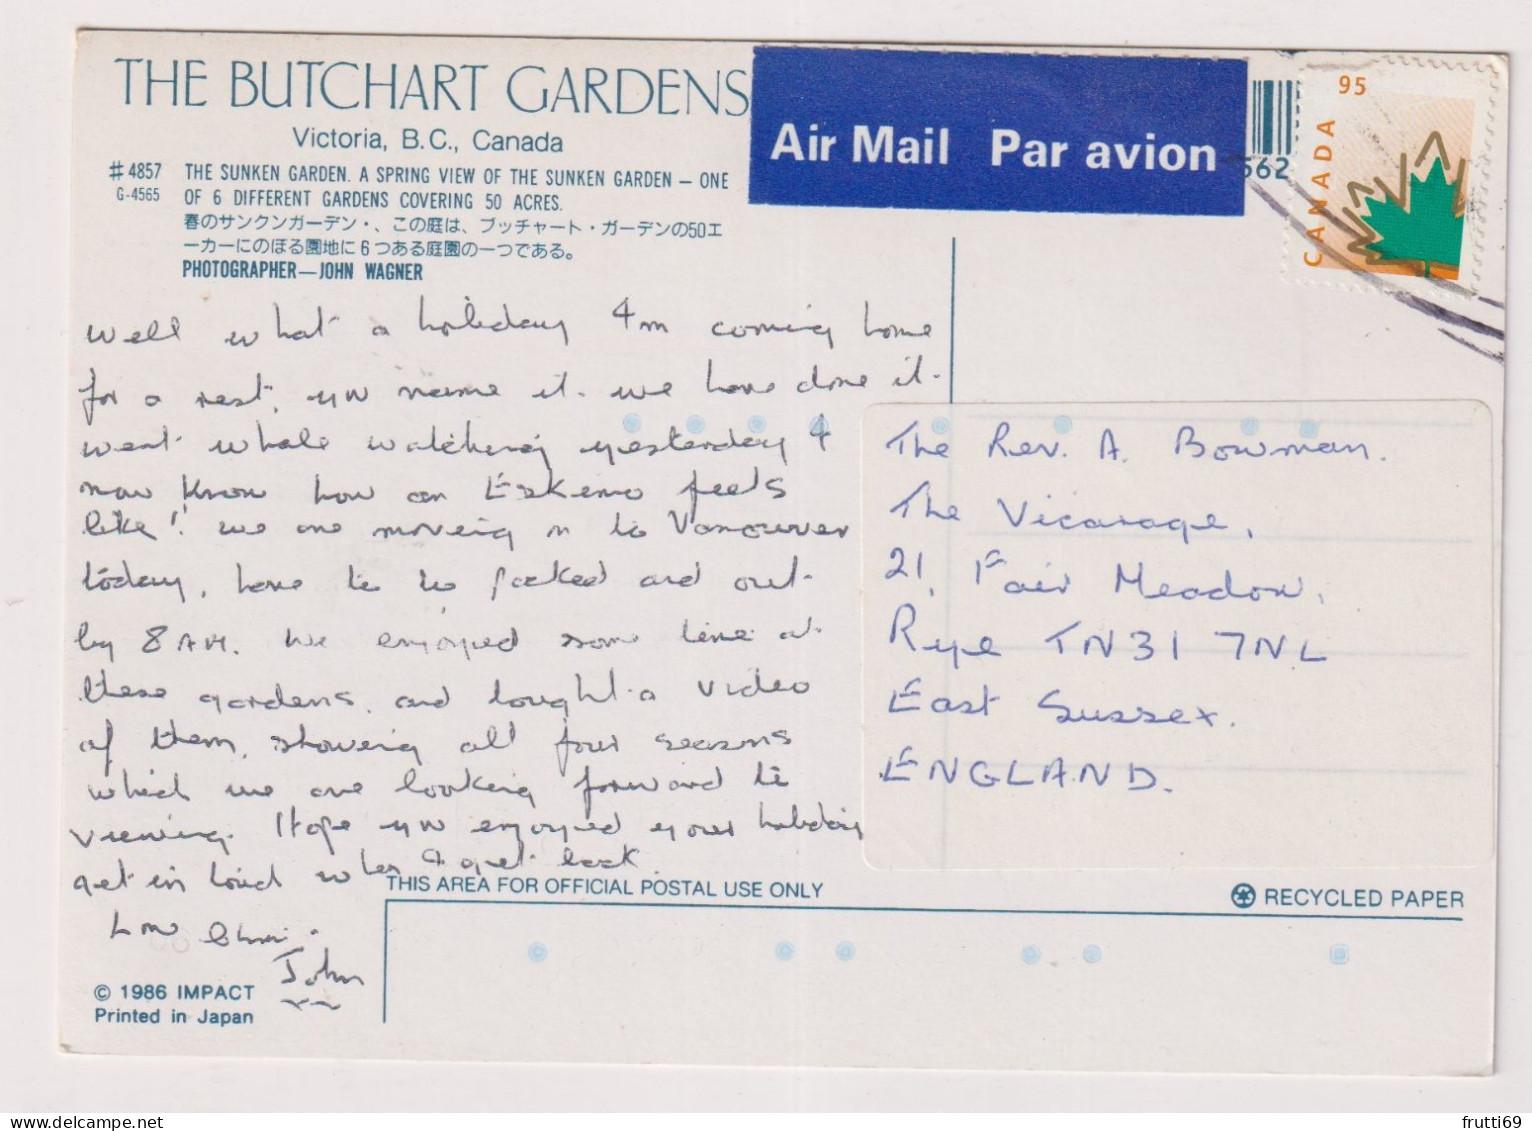 THE BUTCHART GARDENS
Victoria, B.C., Canada
#4857
G-4565
THE SUNKEN GARDEN. A SPRING VIEW OF THE SUNKEN GARDEN — ONE
OF 6 DIFFERENT GARDENS COVERING 50 ACRES.
春のサンクンガーデン・、この庭は、ブッチャート・ガーデンの50エ
ーカーにのぼる園地に6つある庭園の一つである。
PHOTOGRAPHER—JOHN WAGNER
Air Mail Par avion
562
CANADA 95
Well what a holiday I'm coming home
for a rest, you name it. we have done it.
went whale watching yesterday &
now know how an Eskemo feels
like! we are moving on to Vancouver
today, have to be packed and out
by 8 AM. We enjoyed some time at
these gardens, and bought a video
of them, showing all four seasons
which we are looking forward to
viewing. Hope you enjoyed your holiday
get in touch when I get back
Love
John
The Rev. A. Bowman.
The Vicarage,
21, Fair Meadow,
Rye TN31 7NL
East Sussex.
ENGLAND.
THIS AREA FOR OFFICIAL POSTAL USE ONLY
RECYCLED PAPER
© 1986 IMPACT
Printed in Japan
frutti69